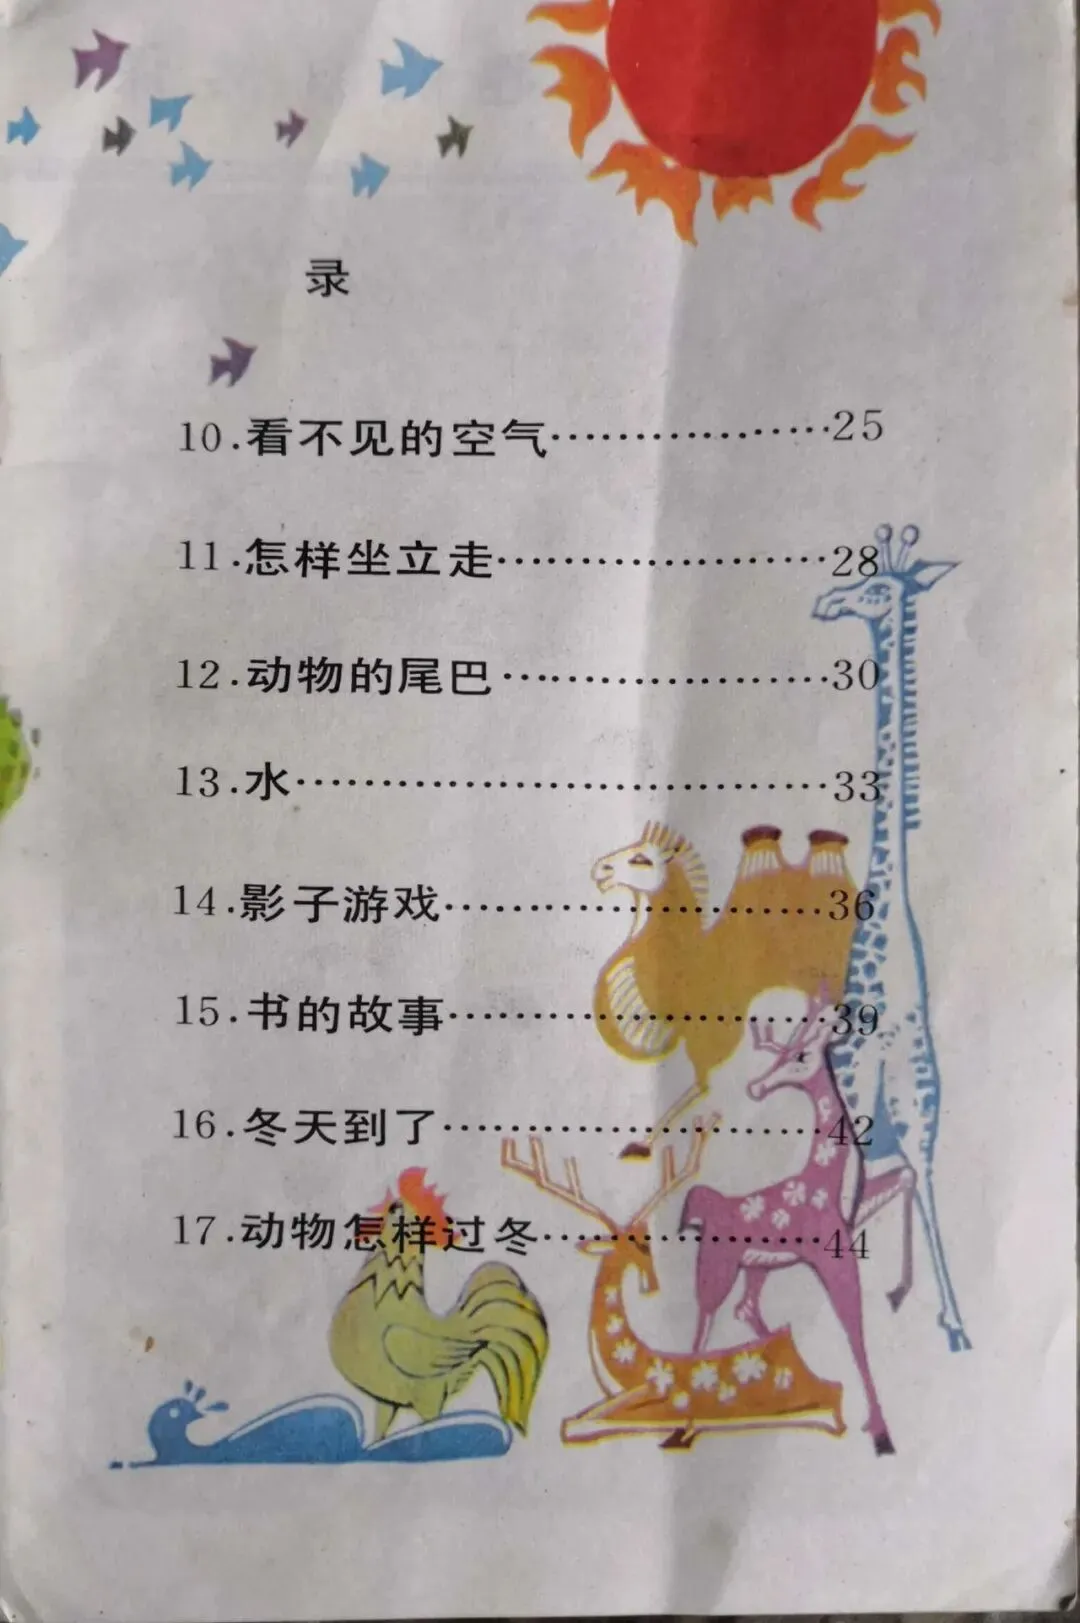 录
10.看不见的空气………………25
11.怎样坐立走…………………28
12.动物的尾巴…………………30
13.水……………………………33
14.影子游戏……………………36
15.书的故事……………………39
16.冬天到了……………………42
17.动物怎样过冬………………44